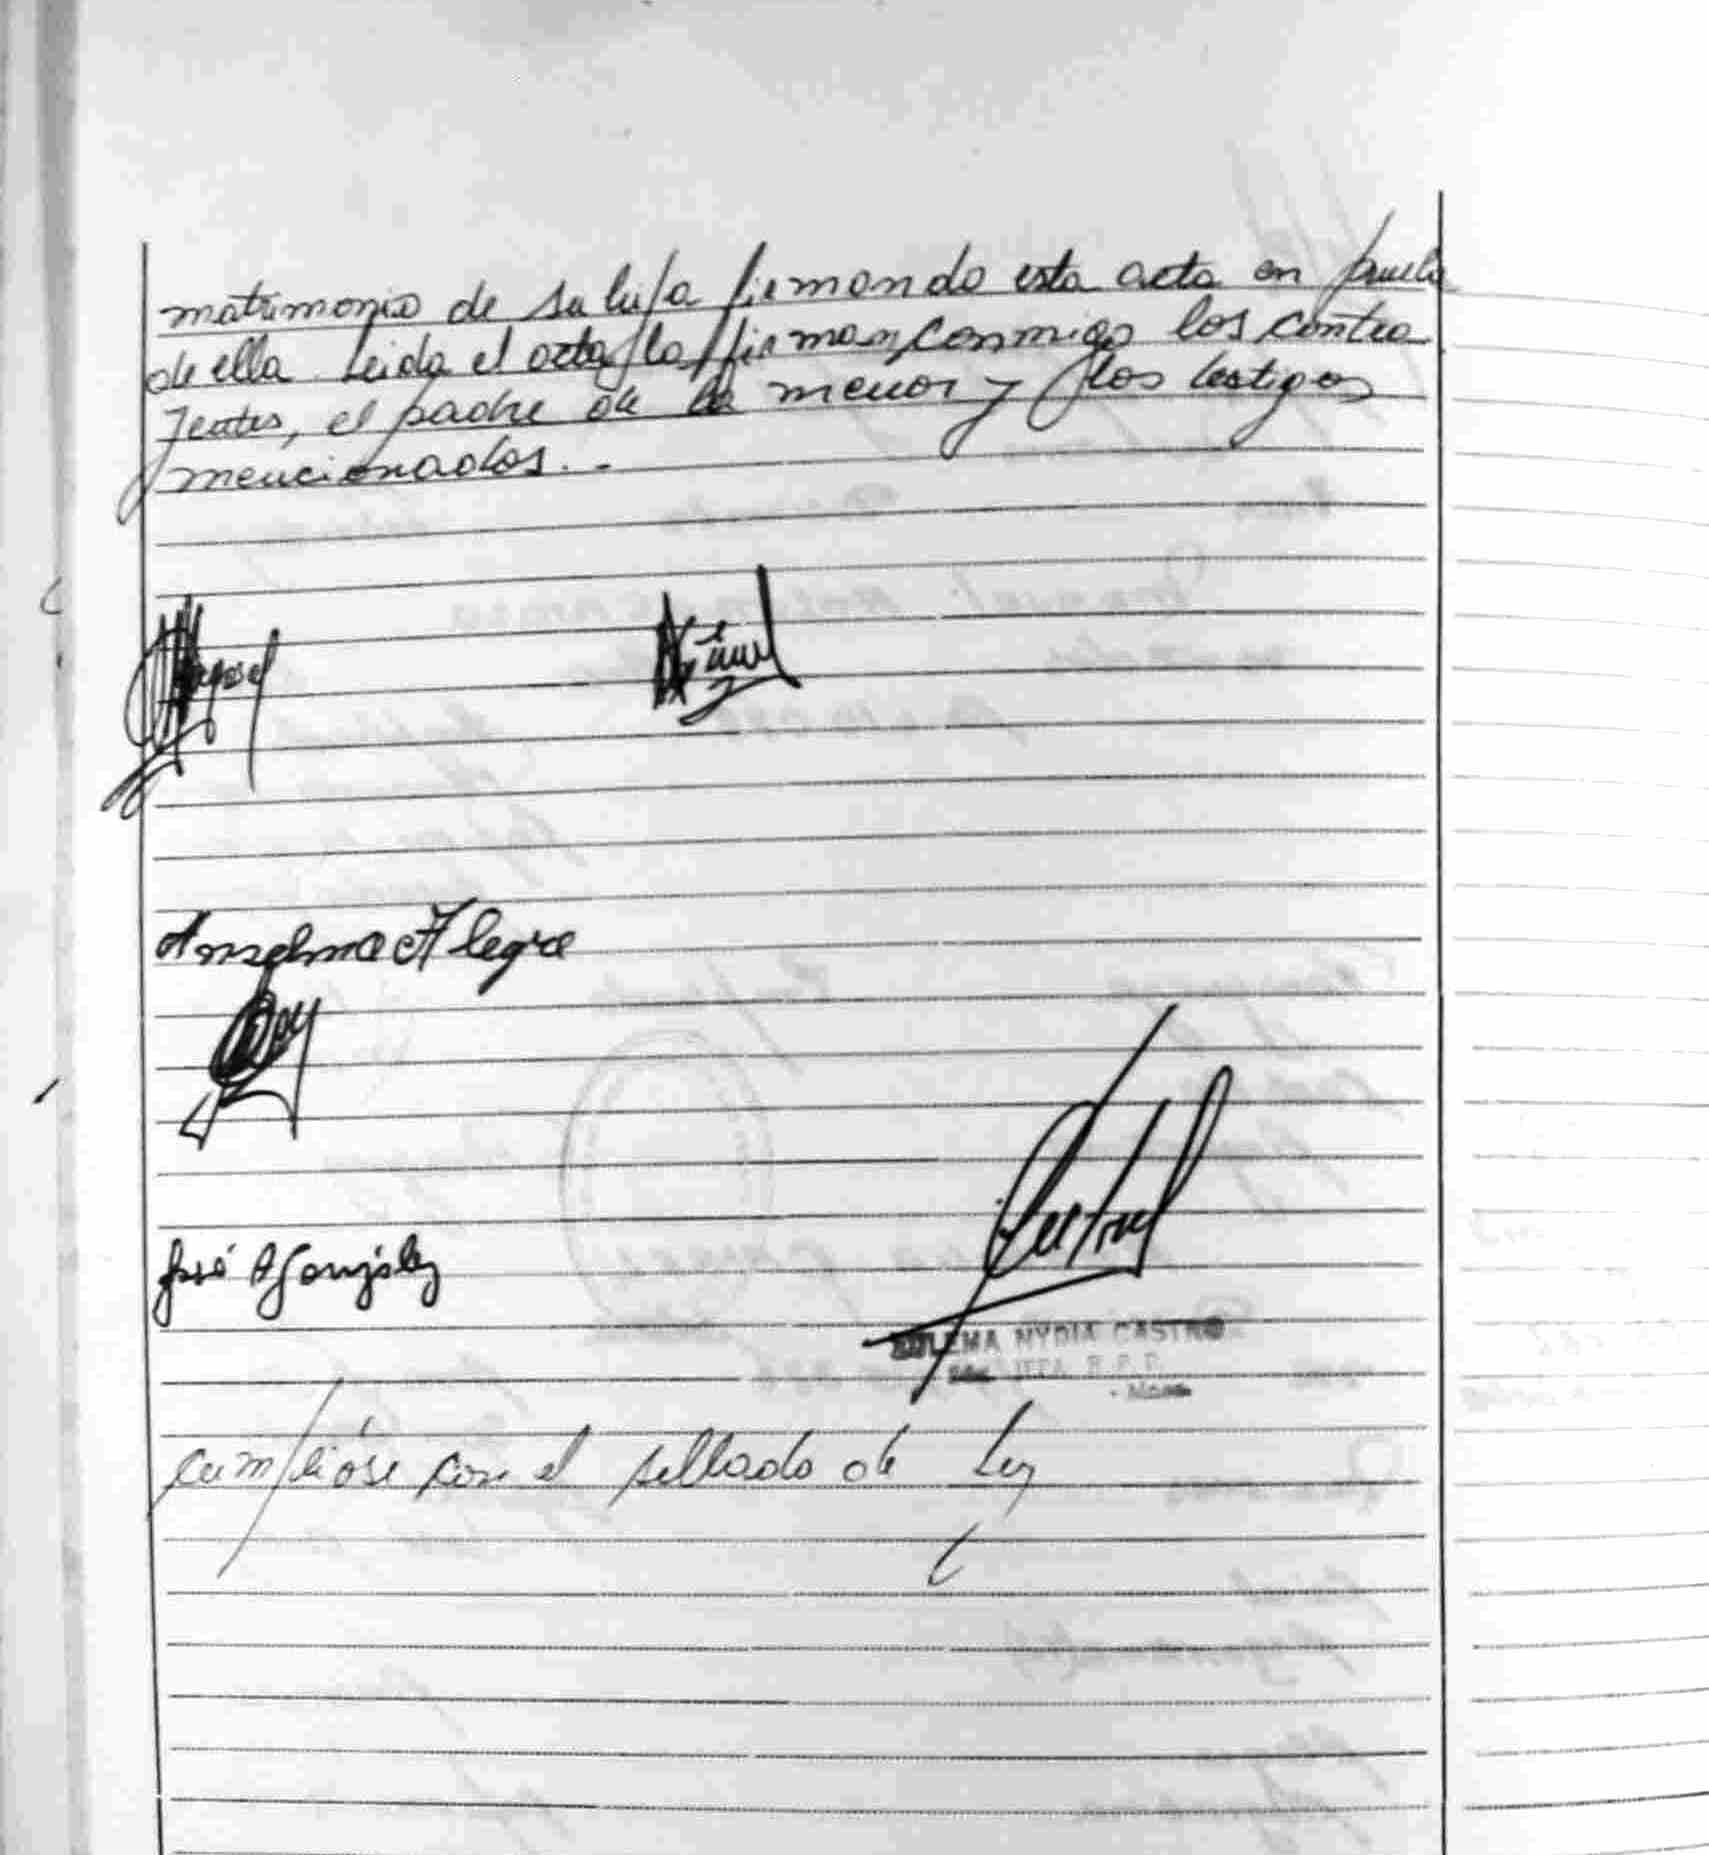 matrimonio de su hija firmando esta acta en prueba
de ella. Leida el acta la firman conmigo los contra
yentes, el padre de la menor y los testigos
mencionados. -
Anselmo Alegre
José A González
ZULEMA NYDIA CASTRO
R. P. P.
cumplióse con el sellado de Ley